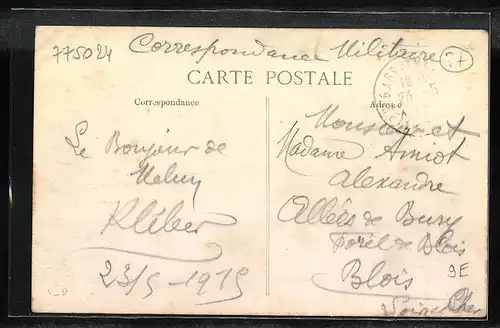 775024
Correspondance Militaire
CARTE POSTALE
Correspondance
Adresse
Le Bonjour de
Kléber
23/5-1915
Monsieur et
Madame Amiot
Alexandre
Allées de Bury
Forêt de Blois
Blois
Loir et Cher
9E